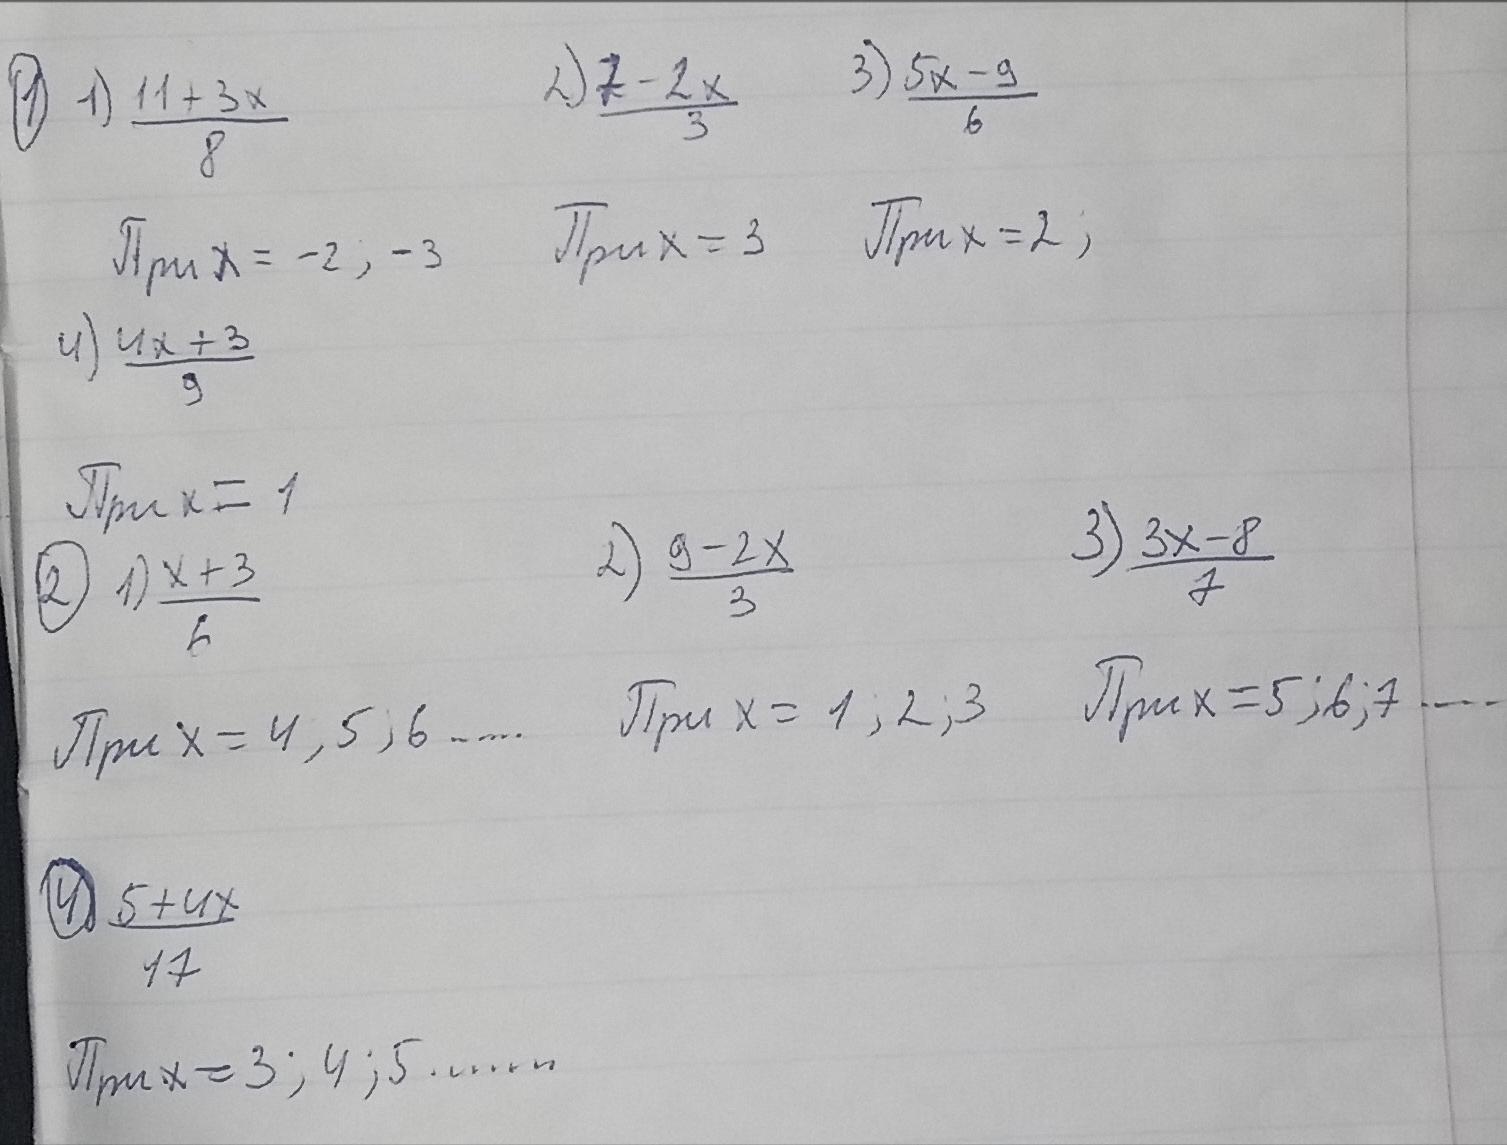 ① 1) (11+3x)/8 2) (7-2x)/3 3) (5x-9)/6
При x = -2; -3 При x = 3 При x = 2;
4) (4x+3)/9
При x = 1
② 1) (x+3)/6 2) (9-2x)/3 3) (3x-8)/7
При x = 4, 5; 6 ..... При x = 1; 2; 3 При x = 5; 6; 7 ----
④ (5+4x)/17
При x = 3; 4; 5 .......